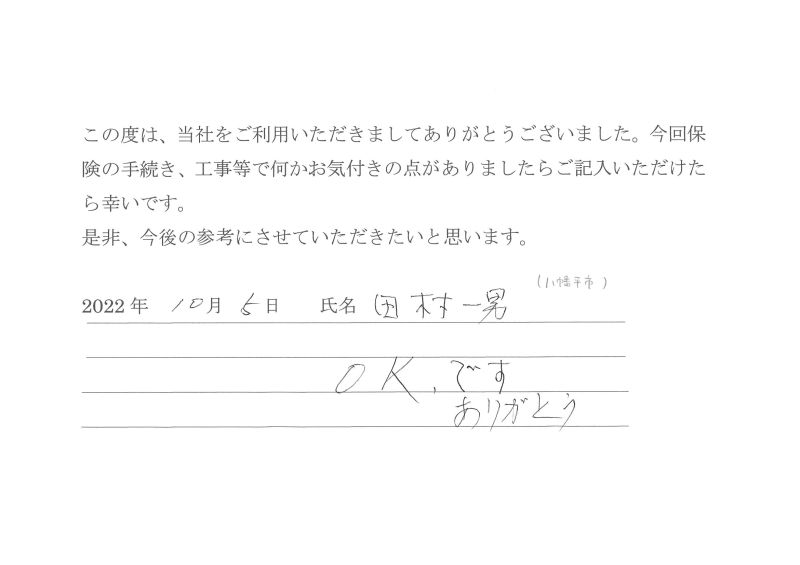 この度は、当社をご利用いただきましてありがとうございました。今回保
険の手続き、工事等で何かお気付きの点がありましたらご記入いただけた
ら幸いです。
是非、今後の参考にさせていただきたいと思います。
(八幡平市)
2022年 10月 5日 氏名 田村一男
OK、です
ありがとう